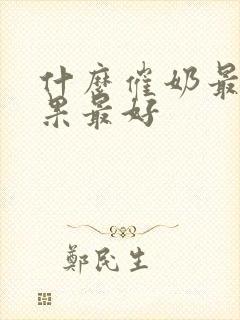 什麼催奶最
果最好
鄭民生